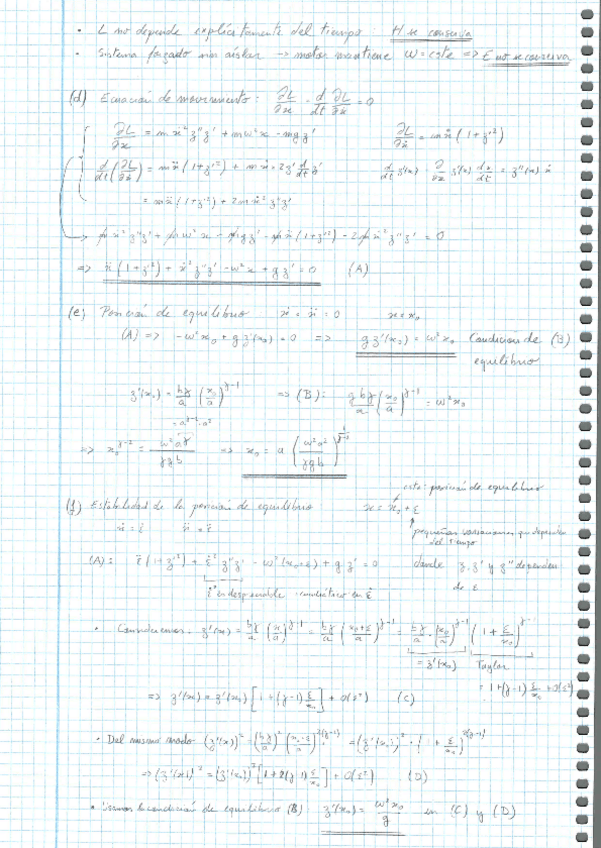 • L no depende explícitamente del tiempo: H se conserva
• Sistema forzado sin aislar → motor mantiene ω = cte => E no se conserva
(d) Ecuación de movimiento: ∂L/∂x - d/dt ∂L/∂ẋ = 0
∂L/∂x = mẋ² z''z' + mω²x - mgz'   ∂L/∂ẋ = mẋ(1+z'²)
d/dt(∂L/∂ẋ) = mẍ(1+z'²) + mẋ 2z' d/dt z'   d/dt z'(x) = ∂/∂x z'(x) dx/dt = z''(x) ẋ
= mẍ(1+z'²) + 2mẋ² z''z'
mẋ² z''z' + mω²x - mgz' - mẍ(1+z'²) - 2mẋ² z''z' = 0
=> ẍ(1+z'²) + ẋ² z''z' - ω²x + gz' = 0   (A)
(e) Posición de equilibrio   ẋ = ẍ = 0   x = x₀
(A) => -ω²x₀ + gz'(x₀) = 0 => gz'(x₀) = ω²x₀ Condición de (B)
equilibrio
z'(x₀) = bγ/a (x₀/a)^(γ-1)   => (B): gbγ/a (x₀/a)^(γ-1) = ω²x₀
=> x₀^(γ-2) = ω²a^γ/γgb   => x₀ = a (ω²a²/γgb)^(1/(γ-2))
cste: posición de equilibrio
(f) Estabilidad de la posición de equilibrio   x = x₀ + ε
ẋ = ε̇   ẍ = ε̈
pequeñas variaciones que dependen
del tiempo
(A): ε̈(1+z'²) + ε̇² z''z' - ω²(x₀+ε) + gz' = 0   donde z, z' y z'' dependen
de ε
• Consideremos z'(x) = bγ/a (x/a)^(γ-1) = bγ/a ((x₀+ε)/a)^(γ-1) = bγ/a (x₀/a)^(γ-1) (1 + ε/x₀)^(γ-1)
= z'(x₀)   Taylor
= 1+(γ-1) ε/x₀ + O(ε²)
=> z'(x) = z'(x₀) [1 + (γ-1) ε/x₀] + O(ε²)   (C)
• Del mismo modo (z'(x))² = (bγ/a)² ((x₀+ε)/a)^(2(γ-1)) = (z'(x₀))² · (1 + ε/x₀)^(2(γ-1))
=> (z'(x))² = (z'(x₀))² [1 + 2(γ-1) ε/x₀] + O(ε²)   (D)
• Usamos la condición de equilibrio (B): z'(x₀) = ω²x₀/g   en (C) y (D)